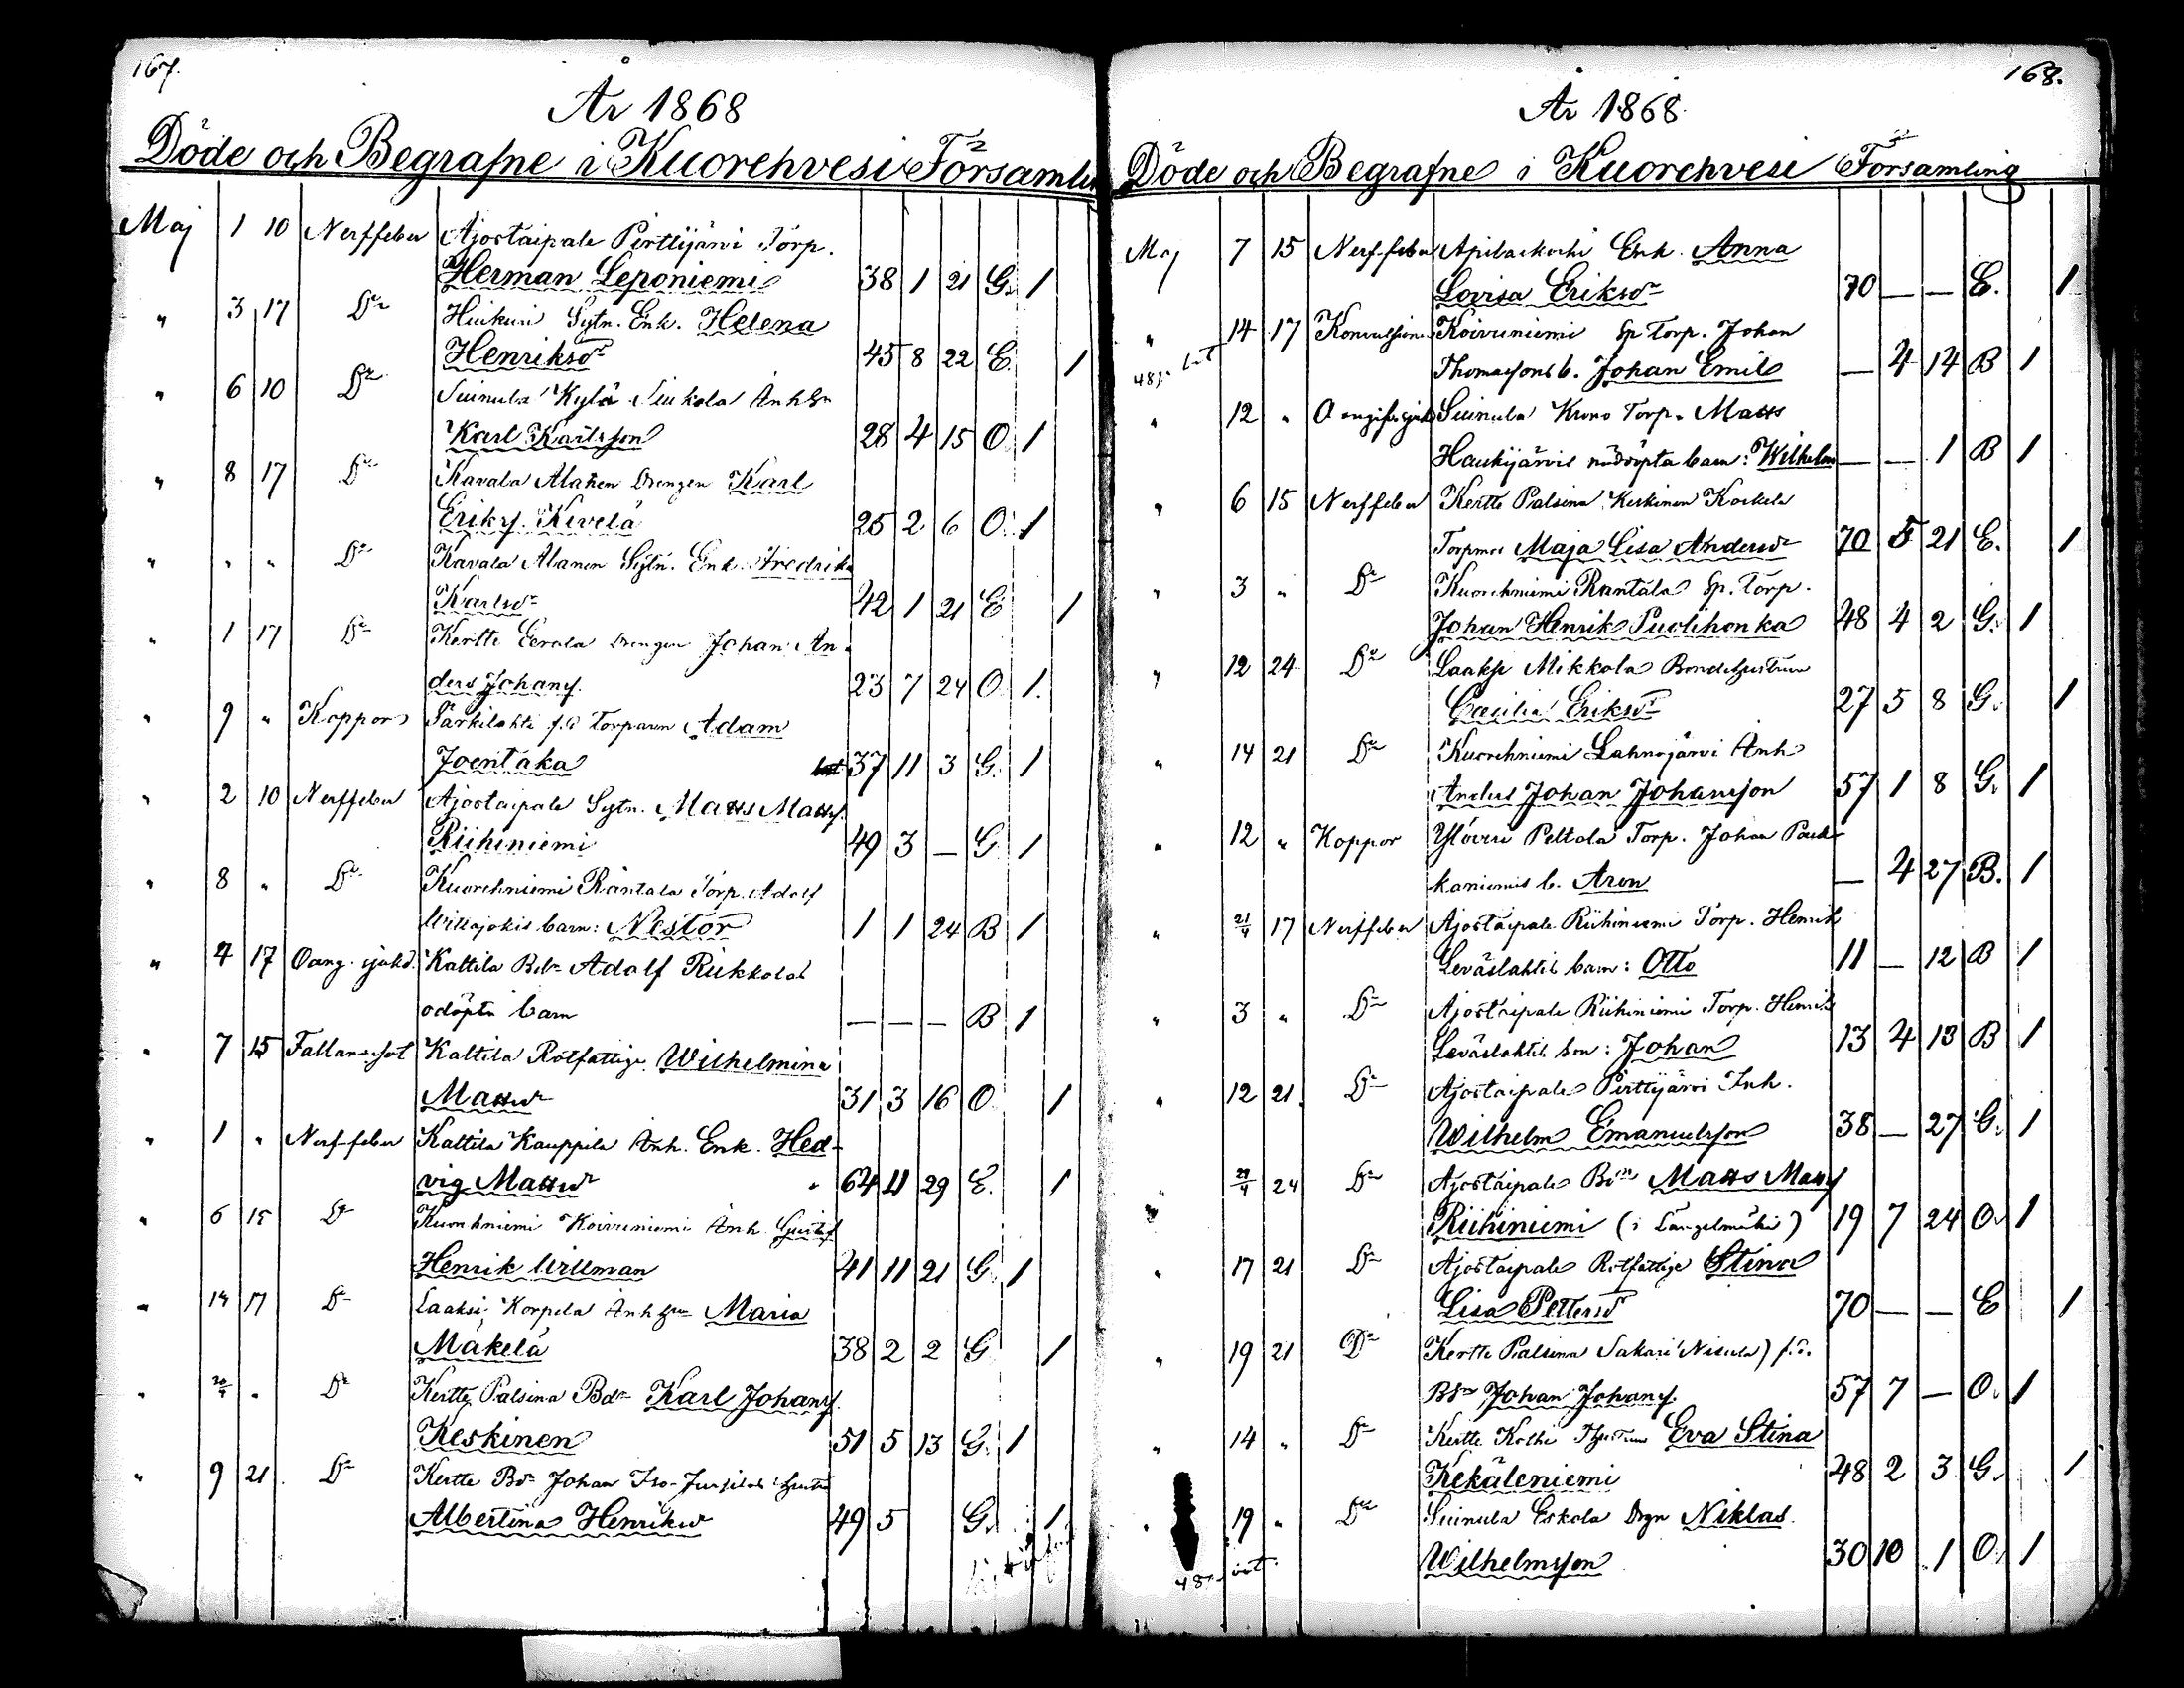 167.
År 1868
Döde och Begrafne i Kuorehvesi Församlin
Maj 1 10 Nerffeber Ajostaipale Pirttijärvi Torp.
Herman Leponiemi 38 1 21 G. 1
" 3 17 Do Sytn. Enk. Helena
Henriksdr 45 8 22 E. 1
" 6 10 Do Suinula Kylä Siukola Inhsn
Karl Karlsson 28 4 15 O. 1
" 8 17 Do Kavala Alanen Drengen Karl
Eriks. Kivelä 25 2 6 O. 1
" " " Do Kavala Alanen Sytn. Enk. Fredrika
Karlsdr 42 1 21 E 1
" 1 17 Do Kertte Eerola Drengen Johan An-
ders Johans. 23 7 24 O. 1.
" 9 " Koppor Parkilahti f.d Torparen Adam
Joentaka 37 11 3 G. 1
" 2 10 Nerffeber Ajostaipale Sytn. Matts Matts.
Riihiniemi 49 3 — G 1
" 8 " Do Kuorehniemi Rantala Torp. Adolf
Willajokis barn: Nestor 1 1 24 B 1
" 4 17 Oang. sjukd. Kattila Bdn Adolf Riikkolas
odöpta barn — — — B 1
" 7 15 Fallandesot Kattila Rotfattige Wilhelmina
Mattsdr 31 3 16 O. 1
" 1 " Nerffeber Kattila Kauppila Inh. Enk. Hed-
vig Mattsdr 64 11 29 E. 1
" 6 15 Do Kuorehniemi Koivuniemi Inh. Gustaf
Henrik Willman 41 11 21 G. 1
" 14 17 Do Laaksi, Korpela Inh Maria
Mäkelä 38 2 2 G 1
" " Do Kertte Palsina Bdn Karl Johans.
Keskinen 51 5 13 G. 1
" 9 21 Do Kertte Bdn Johan Iso-Jussilas hustru
Albertina Henriksdr 49 5 G. 1
168.
År 1868.
Döde och Begrafne i Kuorehvesi Församling
Maj 7 15 Nerffeber Enk. Anna
Lovisa Eriksdr 70 — — E. 1
" 14 17 Koivuniemi Sp Torp. Johan
Thomassons b. Johan Emil — 4 14 B 1
" 12 " Oangifv. sjukd Suinula Krono Torp. Matts
Haukijärvis nöddöpta barn: Wilhelm — — 1 B 1
" 6 15 Nerffeber Kertte Palsina Keskinen Koskela
Maja Lisa Andersdr 70 5 21 E. 1
" 3 " Do Kuorehniemi Rantala Sp. Torp.
Johan Henrik Puolihonka 48 4 2 G. 1
" 12 24 Do Laaksi Mikkola Bondehustrun
Cæcilia Eriksdr 27 5 8 G. 1
" 14 21 Do Kuorehniemi Lahnajärvi Inh
Anders Johan Johansson 57 1 8 G. 1
" 12 " Koppor Ylövesi Peltola Torp. Johan Pouk-
kaniemis b. Aron — 4 27 B. 1
" 21/4 17 Nerffeber Ajostaipale Riihiniemi Torp. Henrik
Leväslahtis barn: Otto 11 — 12 B 1
" 3 " Do Ajostaipale Riihiniemi Torp. Henrik
Leväslahtis son: Johan 13 4 13 B 1
" 12 21 Do Ajostaipale Pirttijärvi Inh.
Wilhelm Emanuelsson 38 — 27 G. 1
" 24 Do Ajostaipale Bdn Matts Matts
Riihiniemi (i Längelmäki) 19 7 24 O. 1
" 17 21 Do Ajostaipale Rotfattige Stina
Lisa Pettersdr 70 — — E 1
" 19 21 Do Kertte Palsina Sakari (Nisula) f.d.
Bdn Johan Johans. 57 7 — O. 1
" 14 " Do Kertte Kolhi Eva Stina
Kekäleniemi 48 2 3 G. 1
" 19 " Do Suinula Eskola Drgn Niklas
Wilhelmsson 30 10 1 O. 1